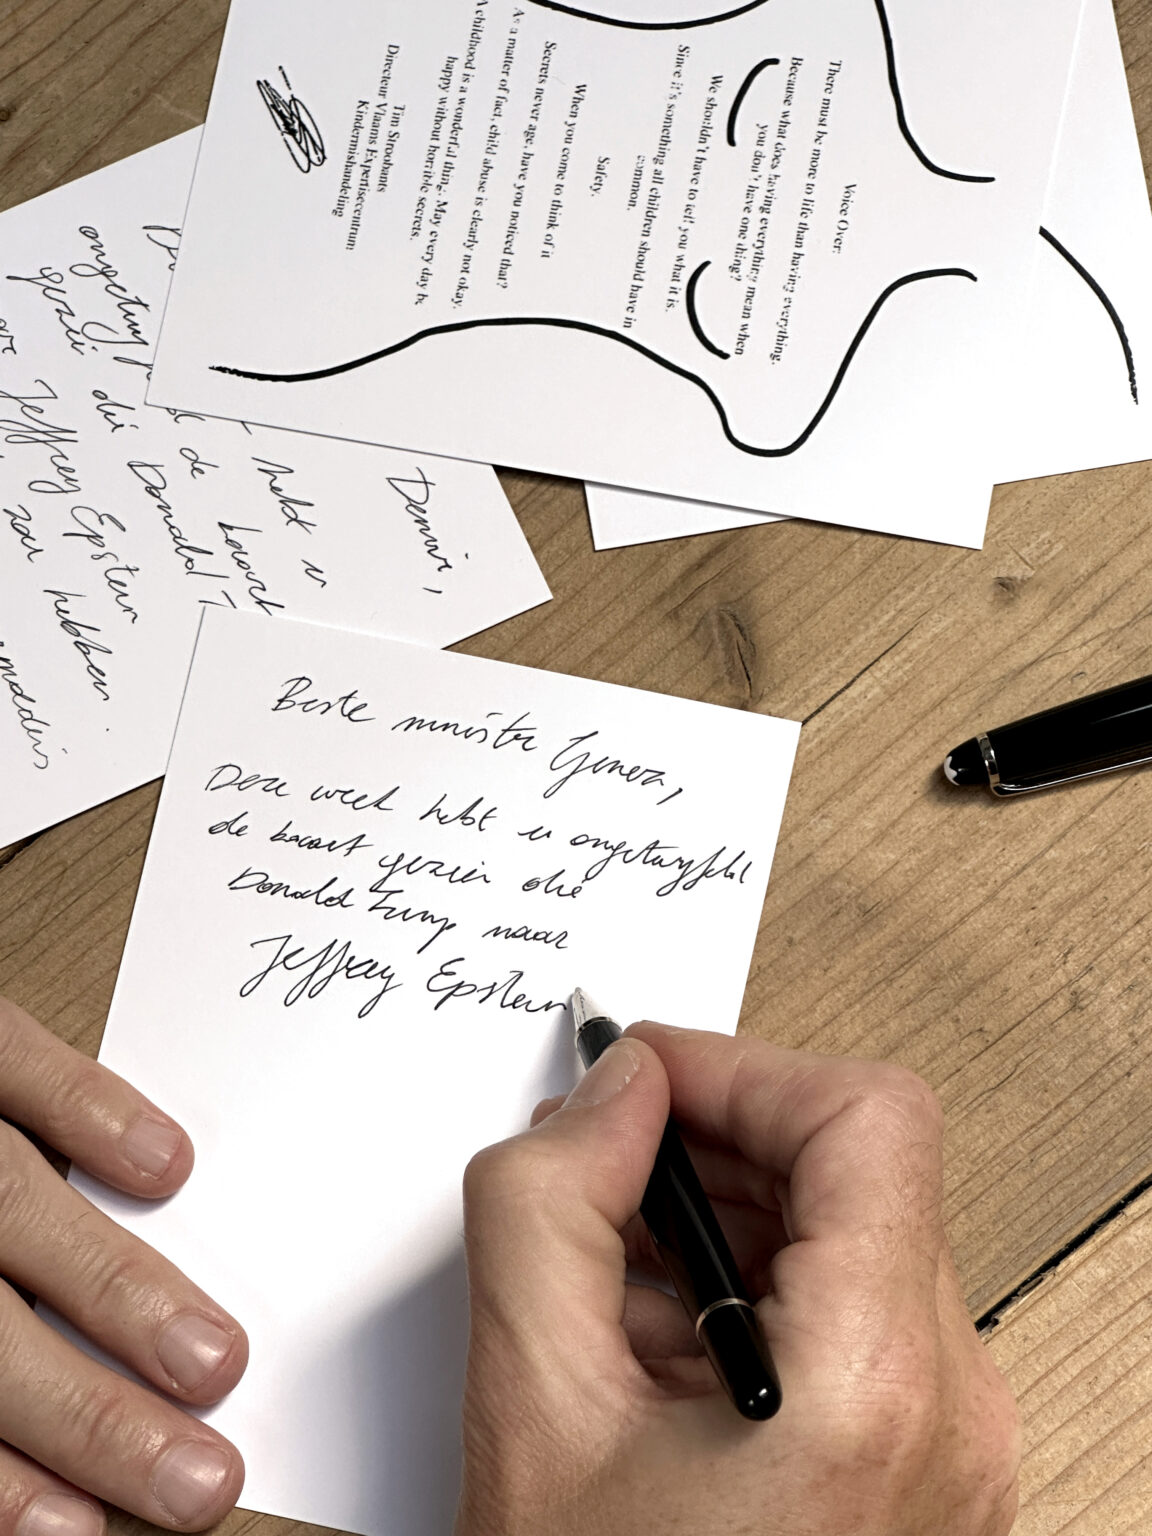 Voice Over:
There must be more to life than having everything.
Because what does having everything mean when
you don't have one thing?
We shouldn't have to tell you what it is.
Since it's something all children should have in
common.
Safety.
When you come to think of it
Secrets never age, have you noticed that?
As a matter of fact, child abuse is clearly not okay.
A childhood is a wonderful thing. May every day be
happy without horrible secrets.
Tim Stroobants
Directeur Vlaams Expertisecentrum
Kindermishandeling
Demir,
hebt u
de kaart
gezien die Donald T
Jeffrey Epstein
zou hebben
Beste minister Gennez,
Deze week hebt u ongetwijfeld
de kaart gezien die
Donald Trump naar
Jeffrey Epstein